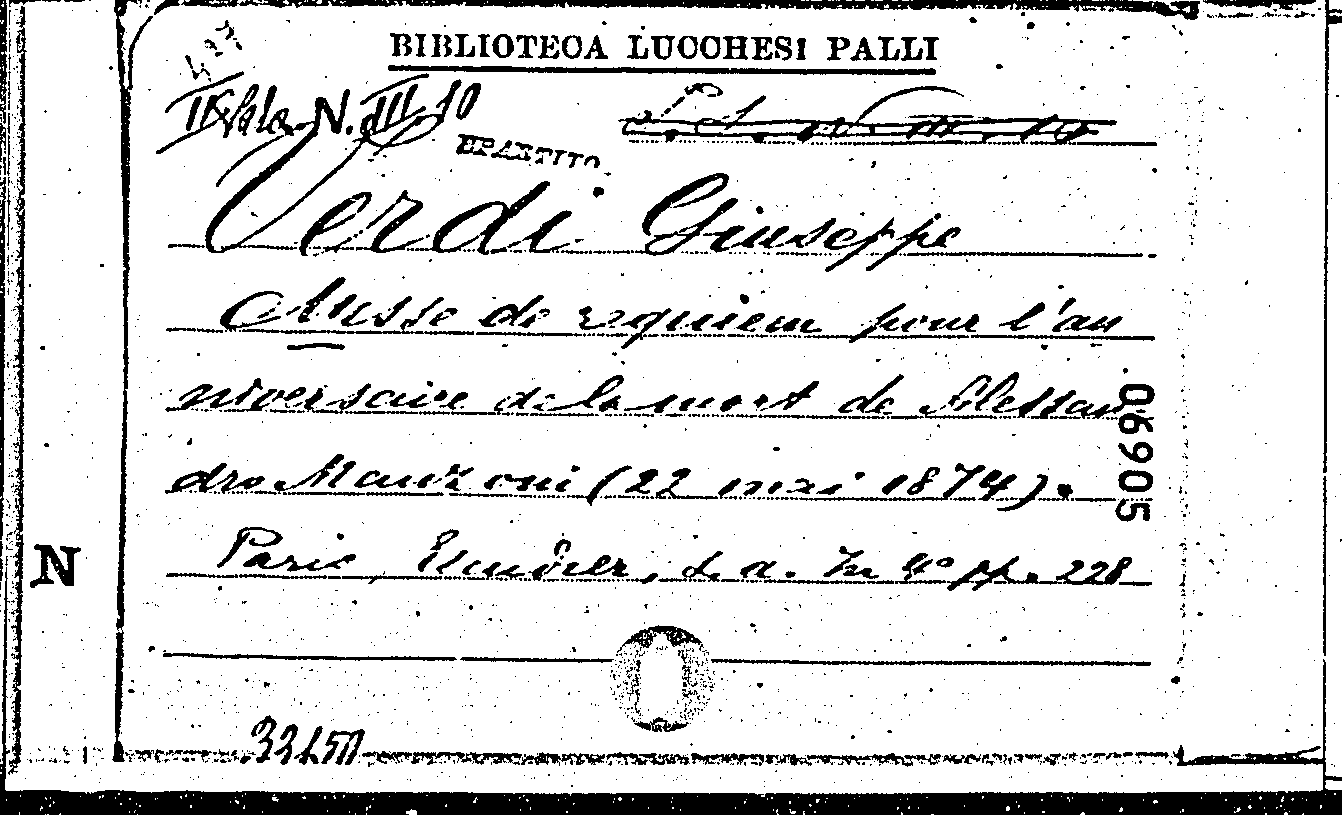 BIBLIOTECA LUCCHESI PALLI
497
IIª Sala N. III. 10
Verdi Giuseppe
Messe de requiem pour l'an
niversaire de la mort de Alessan
dro Manzoni (22 mai 1874).
Paris, Escudier, s. a. In 4º pp. 228
06905
N